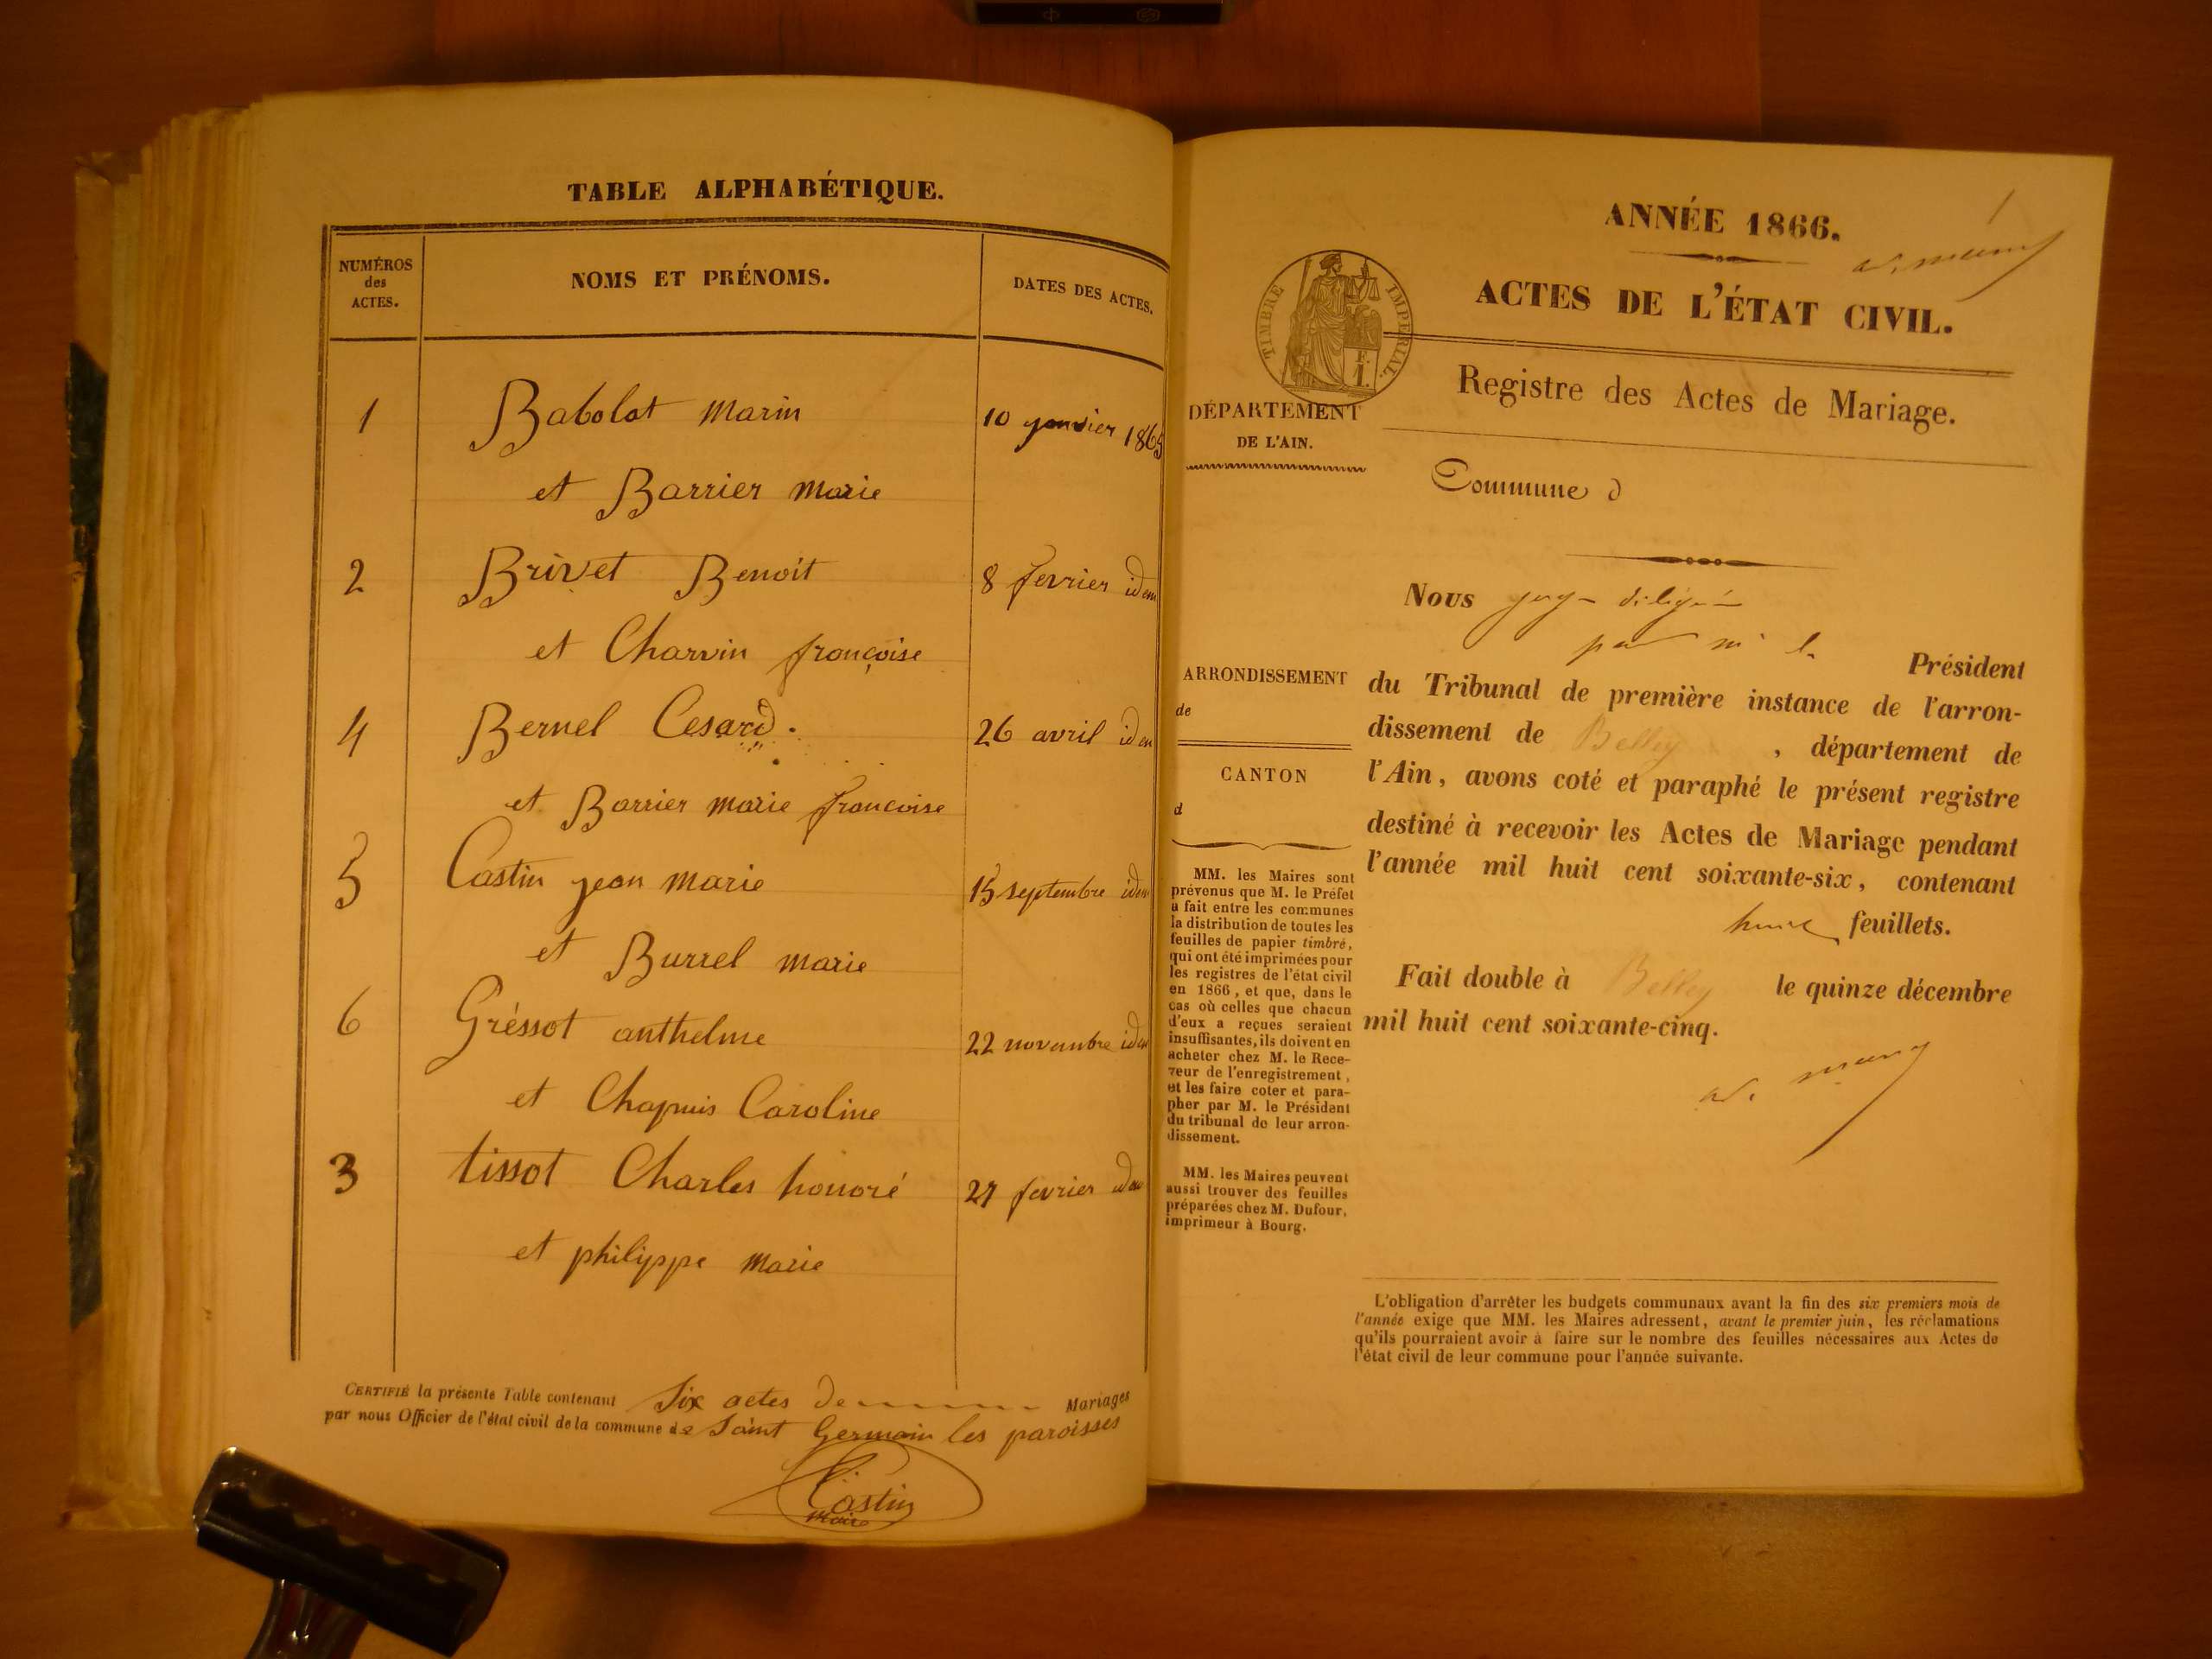 TABLE ALPHABÉTIQUE.
NUMÉROS des ACTES.
NOMS ET PRÉNOMS.
DATES DES ACTES.
1 Babolat marin 10 janvier 1865
et Barrier marie
2 Brivet Benoit 8 fevrier idem
et Charvin françoise
4 Bernel Cesard. 26 avril idem
et Barrier marie francoise
5 Castin jean marie 15 septembre idem
et Burrel marie
6 Gréssot anthelme 22 novembre idem
et Chapuis Caroline
3 tissot Charles honoré 27 fevrier idem
et philippe marie
CERTIFIÉ la présente Table contenant Six actes de Mariages
par nous Officier de l'état civil de la commune de Saint Germain les paroisses
Castin
maire
1
ANNÉE 1866.
ACTES DE L'ÉTAT CIVIL.
TIMBRE IMPÉRIAL.
Registre des Actes de Mariage.
DÉPARTEMENT
DE L'AIN.
Commune d
ARRONDISSEMENT
de
CANTON
d
MM. les Maires sont
prévenus que M. le Préfet
a fait entre les communes
la distribution de toutes les
feuilles de papier timbré,
qui ont été imprimées pour
les registres de l'état civil
en 1866, et que, dans le
cas où celles que chacun
d'eux a reçues seraient
insuffisantes, ils doivent en
acheter chez M. le Rece-
veur de l'enregistrement,
et les faire coter et para-
pher par M. le Président
du tribunal de leur arron-
dissement.
MM. les Maires peuvent
aussi trouver des feuilles
préparées chez M. Dufour,
imprimeur à Bourg.
Nous
par
Président
du Tribunal de première instance de l'arron-
dissement de Belley, département de
l'Ain, avons coté et paraphé le présent registre
destiné à recevoir les Actes de Mariage pendant
l'année mil huit cent soixante-six, contenant
feuillets.
Fait double à Belley le quinze décembre
mil huit cent soixante-cinq.
L'obligation d'arrêter les budgets communaux avant la fin des six premiers mois de
l'année exige que MM. les Maires adressent, avant le premier juin, les réclamations
qu'ils pourraient avoir à faire sur le nombre des feuilles nécessaires aux Actes de
l'état civil de leur commune pour l'année suivante.